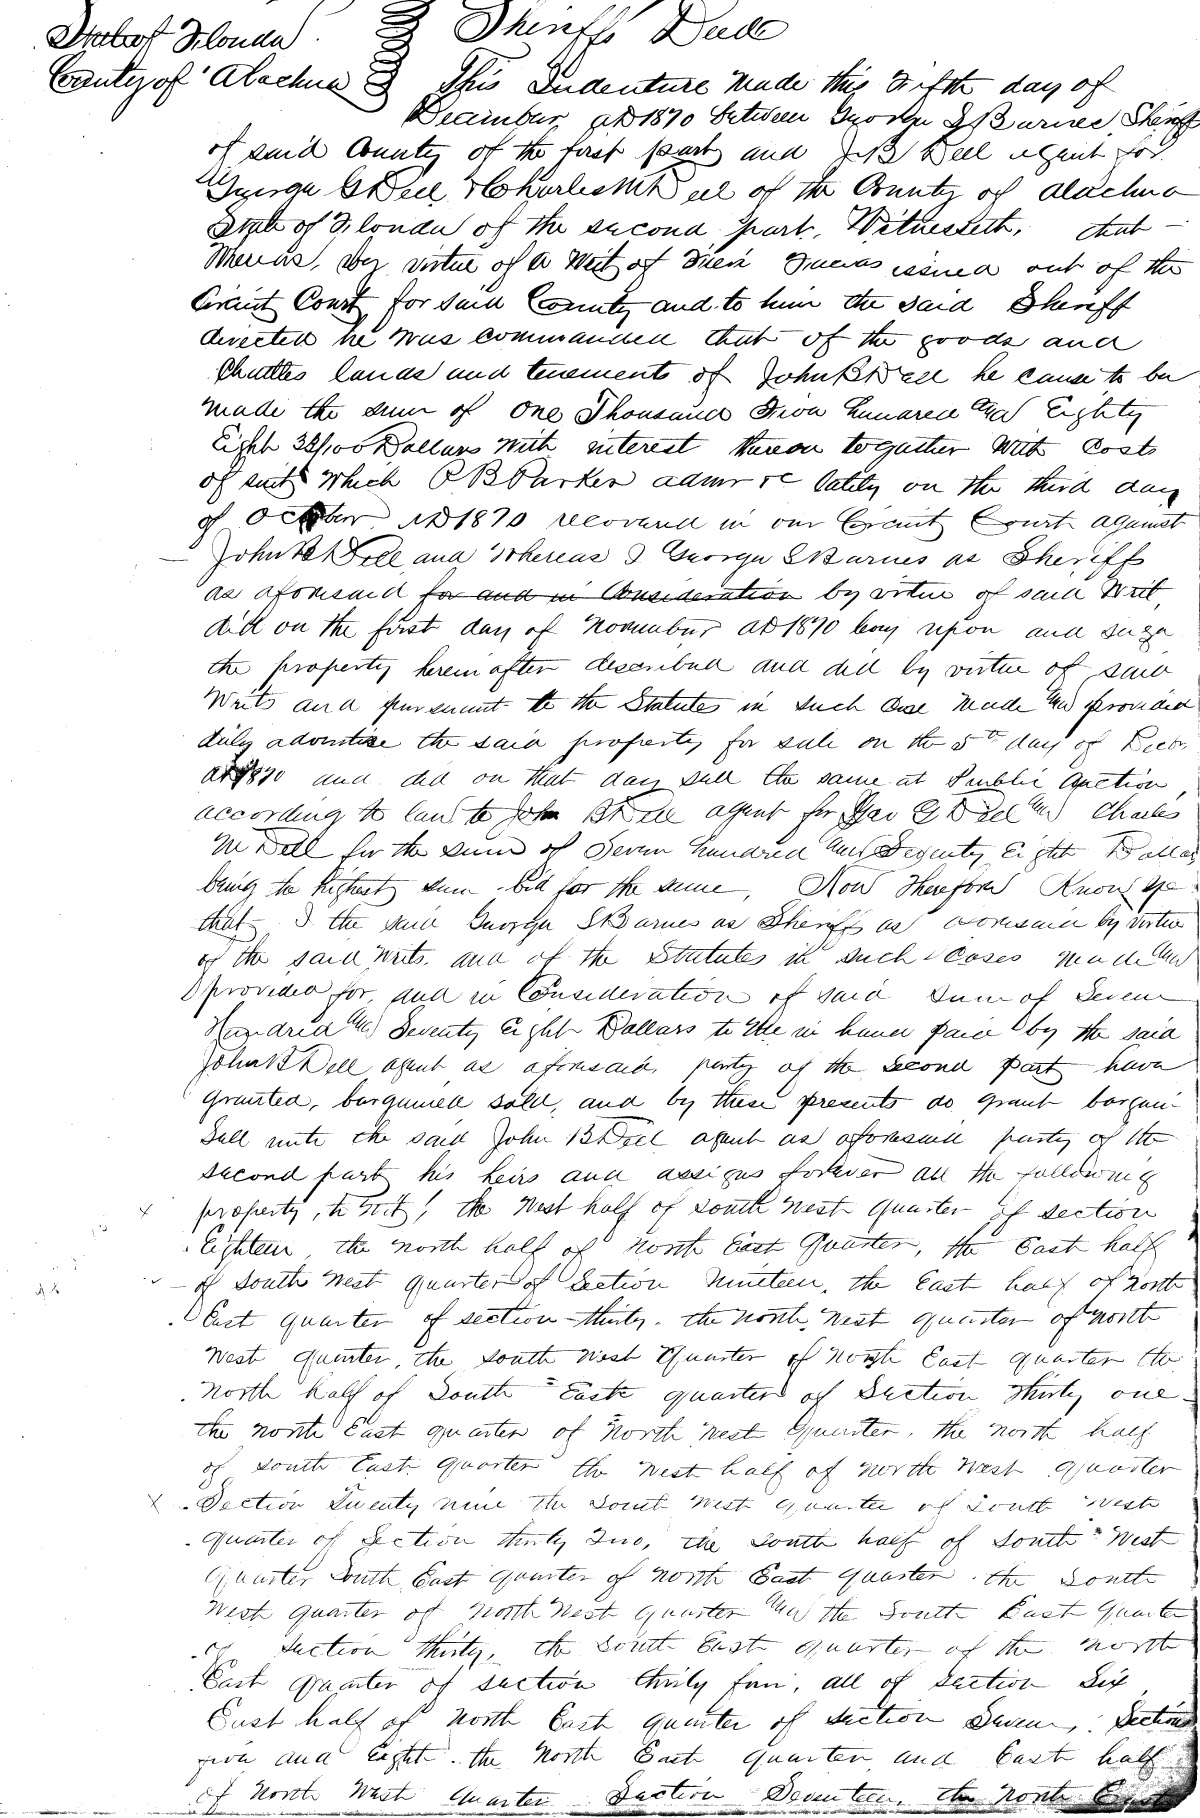 State of Florida Sheriffs Deed
County of Alachua This Indenture made this Fifth day of
December AD 1870 between George S Barnes Sheriff
of said County of the first part and J B Dell agent for
George G Dell & Charles M Dell of the County of Alachua
State of Florida of the second part, Witnesseth, that
Whereas, by virtue of a Writ of Fieri Facias issued out of the
Circuit Court for said County and to him the said Sheriff
directed he was commanded that of the goods and
Chattles lands and tenements of John B Dell he cause to be
made the sum of One Thousand Five hundred and Eighty
Eight 33/100 Dollars with interest thereon together with costs
of suit which P B Parker admr &c lately on the third day
of October AD 1870 recovered in our Circuit Court against
John B Dell and Whereas I George S Barnes as Sheriff
as aforesaid for and in Consideration by virtue of said Writ,
did on the first day of November AD 1870 levy upon and
the property herein after described and did by virtue of said
Writs and pursuant to the Statutes in such Case made and provided
duly advertise the said property for sale on the 5th day of Decbr
AD 1870 and did on that day sell the same at Public Auction,
according to law to John B Dell agent for Geo G Dell and Charles
M Dell for the sum of Seven hundred and Seventy Eight Dollars
being the highest sum bid for the same, Now Therefore Know ye
that I the said George S Barnes as Sheriff as aforesaid by virtue
of the said writs. and of the Statutes in such Cases made and
provided for, and in Consideration of said sum of Seven
Hundred and Seventy Eight Dollars to Me in hand paid by the said
John B Dell agent as aforesaid, party of the Second part have
granted, bargained sold, and by these presents do grant bargain
Sell unto the said John B Dell agent as aforesaid party of the
second part his heirs and assigns forever all the following
property, to wit, the West half of south West quarter of section
Eighteen, the north half of North East Quarter, the East half
of South West quarter of Section Nineteen, the East half of North
East quarter of section thirty. the North West quarter of north
West quarter, the south West Quarter of North East quarter the
North half of South East quarter of Section thirty one
the north East quarter of North West quarter. the north half
of south East quarter the West half of north West quarter
Section Twenty nine the South West quarter of South West
quarter of Section thirty Two, the south half of South West
Quarter South East quarter of north East quarter. the South
West quarter of North West quarter and the South East Quarter
of section thirty, the South East quarter of the north
East quarter of section thirty four, all of section Six,
East half of North East quarter of section Seven, Section
five and Eight. the North East quarter and East half
of North West quarter Section Seventeen, the North East